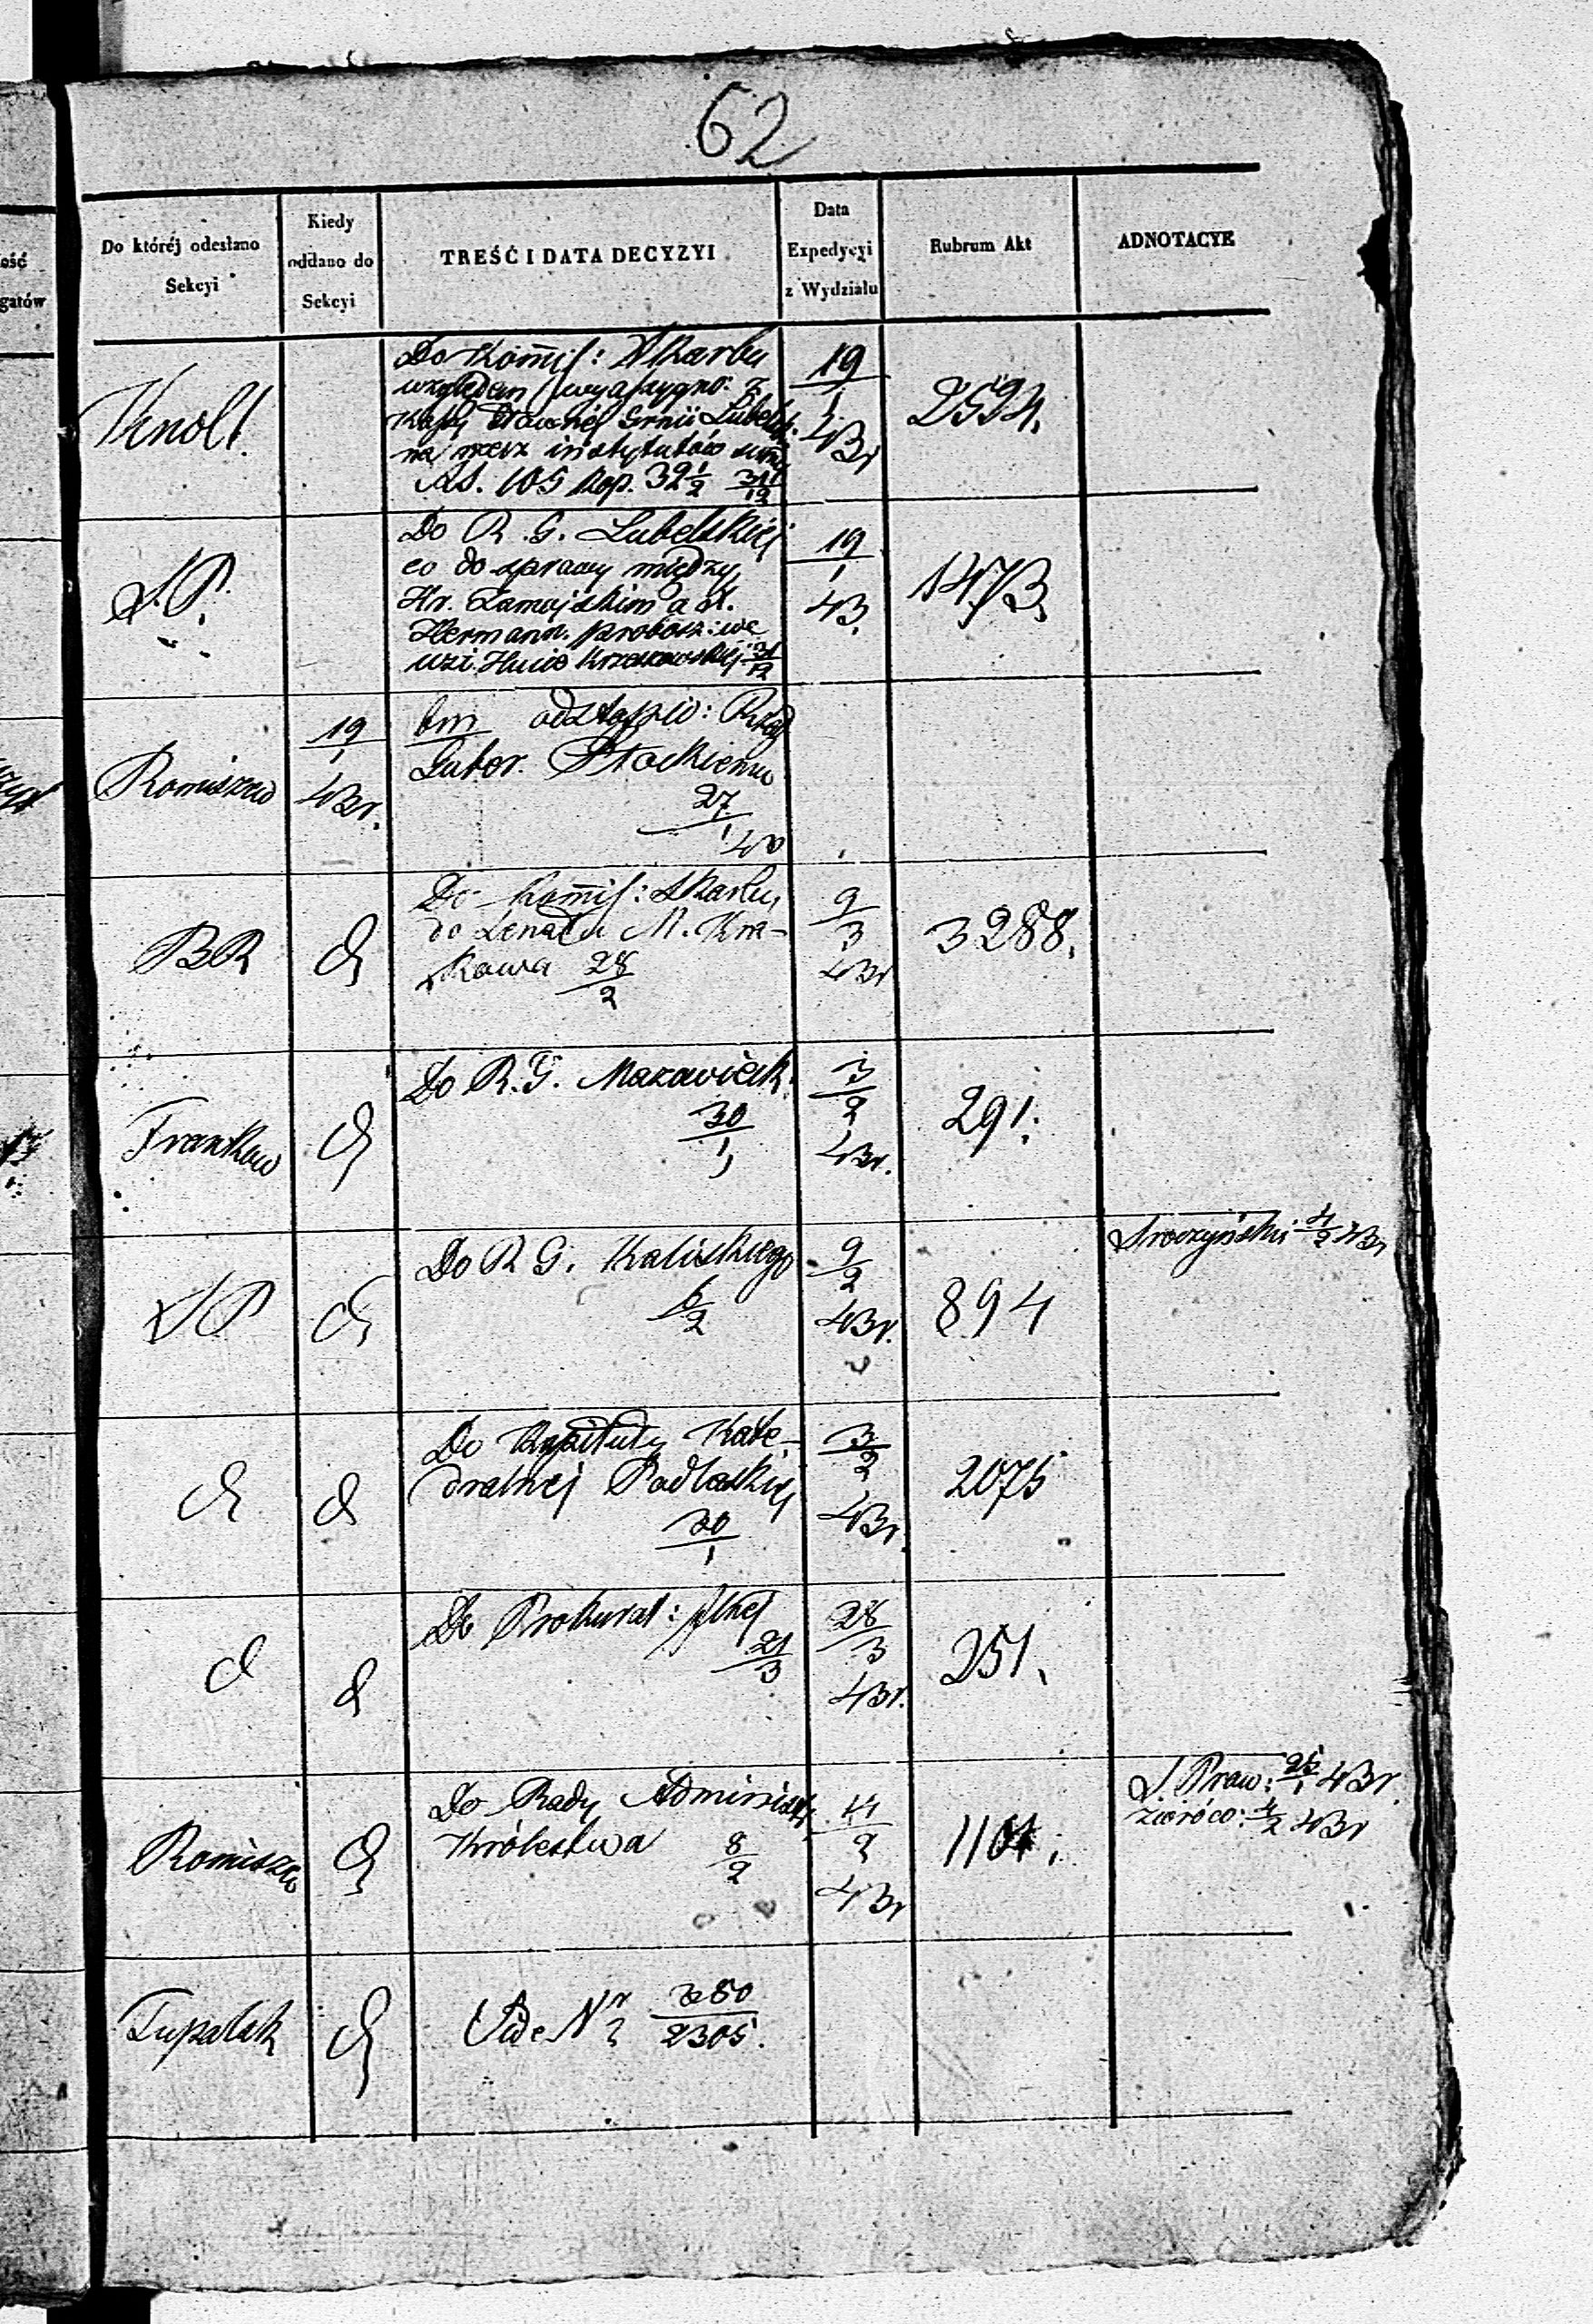 62
Do któréj odesłano
Sekcyi
Kiedy
oddano do
Sekcyi
TREŚĆ I DATA DECYZYI
Data
Expedycyi
z Wydziału
Rubrum Akt
ADNOTACYE
ość
gatów
Knolt.
Do Kom̄is: Skarbu
względem wyasygno: z
Kassy Głównéj Grnii Lubels.
na rzecz instytutów sum̄y
RS. 105 kop. 32½ 31/12
19/1
43r
2594.
S.P.
Do R. G. Lubelskiéj
co do sprawy między
Hr. Zamojskim a X.
Hermann. probosz: we
wsi Hucie Krzeszowskiéj 31/12
19/1
43.
1473.
Romiszew
19/1
43r.
bm odstąpio: Rząd
Guber. Płockiemu
27/1
43
BR
d
Do Kom̄is: Skarbu,
do Senatu M. Kra-
kowa 28/2
9/3
43r
3288.
Frankow
d
Do R. G. Mazowieck.
30/1
3/2
43r.
291.
SP
d
Do R G. Kaliskiego
6/2
9/2
43r.
894
Sroczyński 4/2 43r
d
d
Do Kapituły Kate-
dralnéj Podlaskiéj
30/1
3/2
43r.
2075
d
d
Do Prokurat:
21/3
28/3
43r.
251.
Romiszew
d
Do Rady Administ.
Królestwa 8/2
11/2
43r
1101.
S. Praw: 25/1 43r.
zwróco: 4/2 43r
Tupalsk
d
Vide Nr 350/2305.